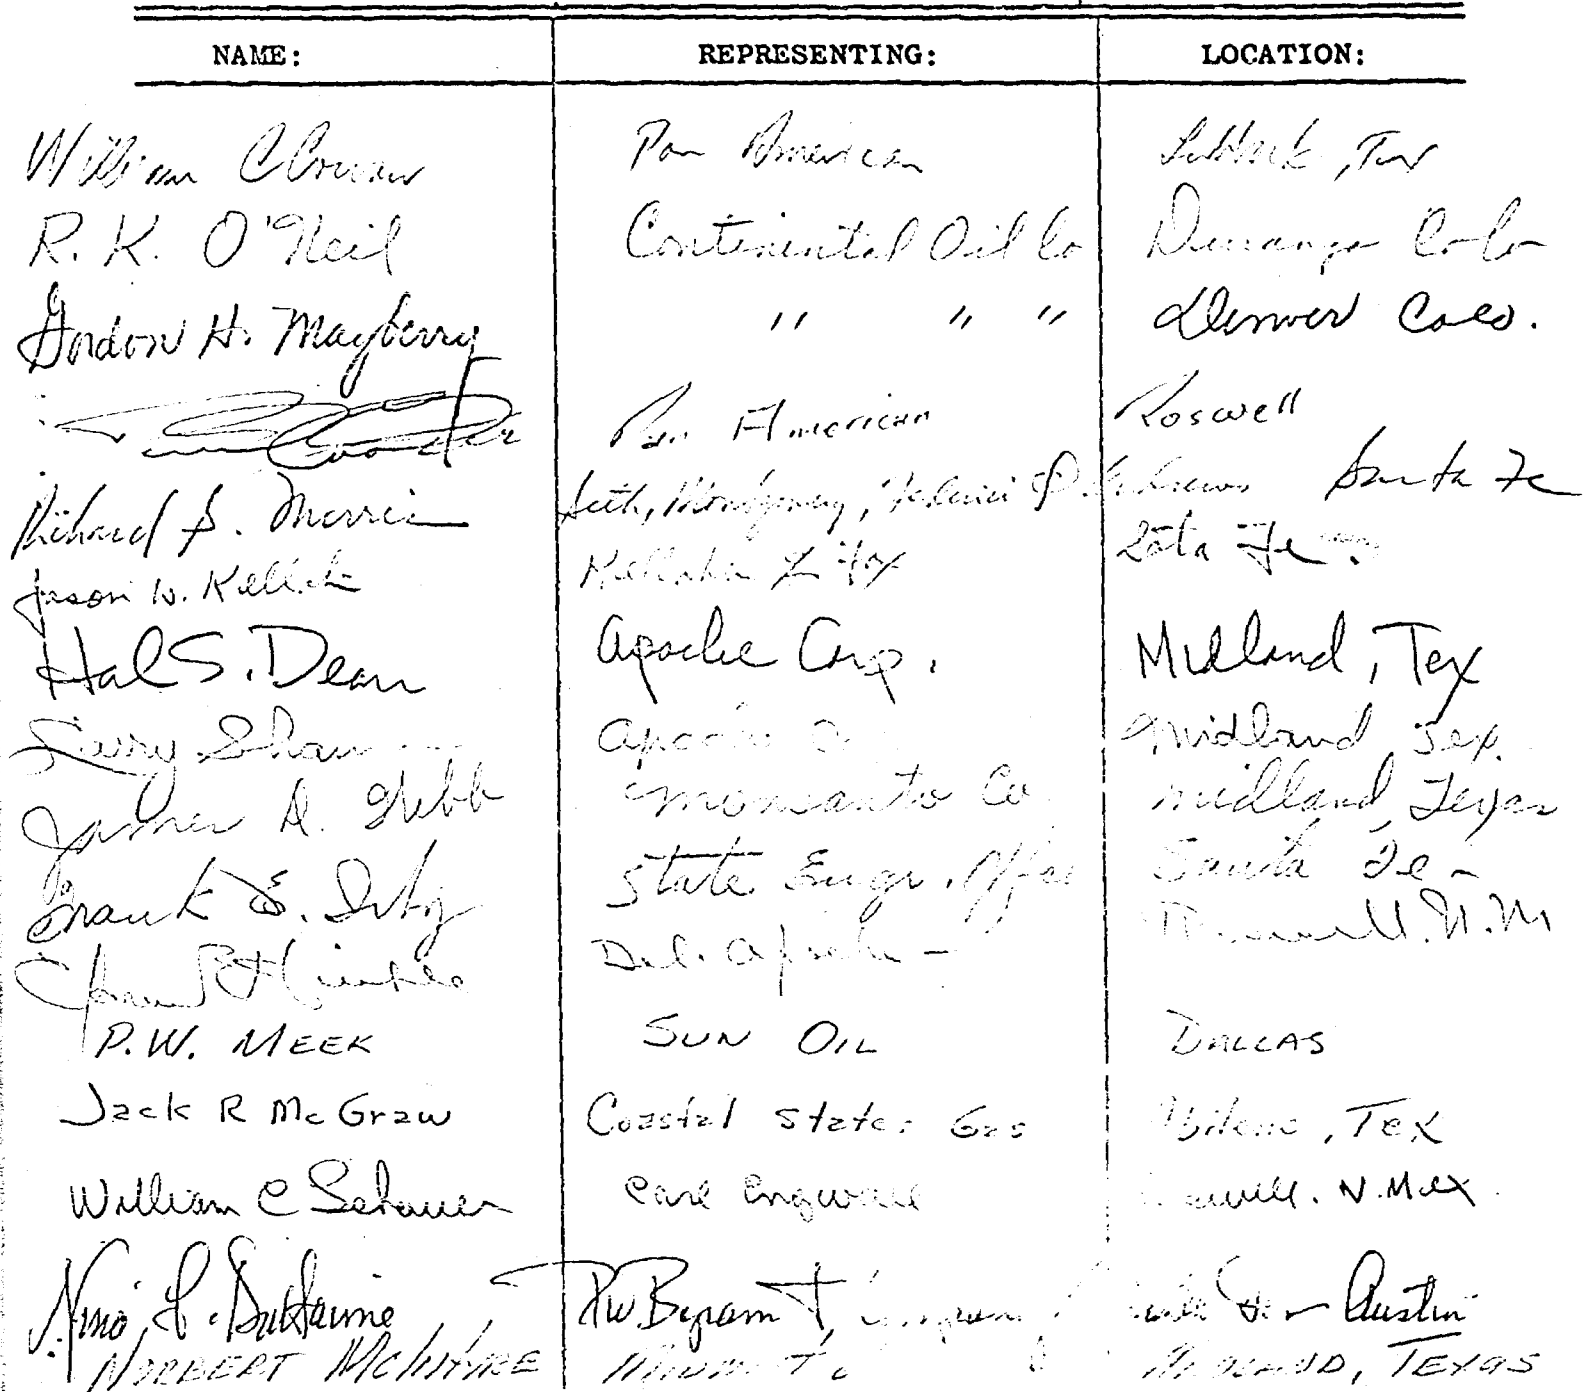 NAME: REPRESENTING: LOCATION:
William Pan American Lubbock, Tex
R. K. O'Neil Continental Oil Co Durango Colo
Gordon H. Mayberry " " " Denver Colo.
Pan American Roswell
Richard S. Morris Seth, Montgomery, Federici & Andrews Santa Fe
Jason W. Kellahin Kellahin & Fox Santa Fe
Hal S. Dean Apache Corp. Midland, Tex
Larry Shaw Apache Midland, Tex.
James D. Monsanto Co Midland, Texas
Frank E. Irby State Engr. Office Santa Fe
Hinkle Del. Apache - N.M
P.W. MEEK SUN OIL DALLAS
Jack R McGraw Coastal States Gas Abilene, Tex
William C Schauer Carl Engwall N. Mex.
PW Byram & Austin
NORBERT McINTYRE MIDLAND, TEXAS